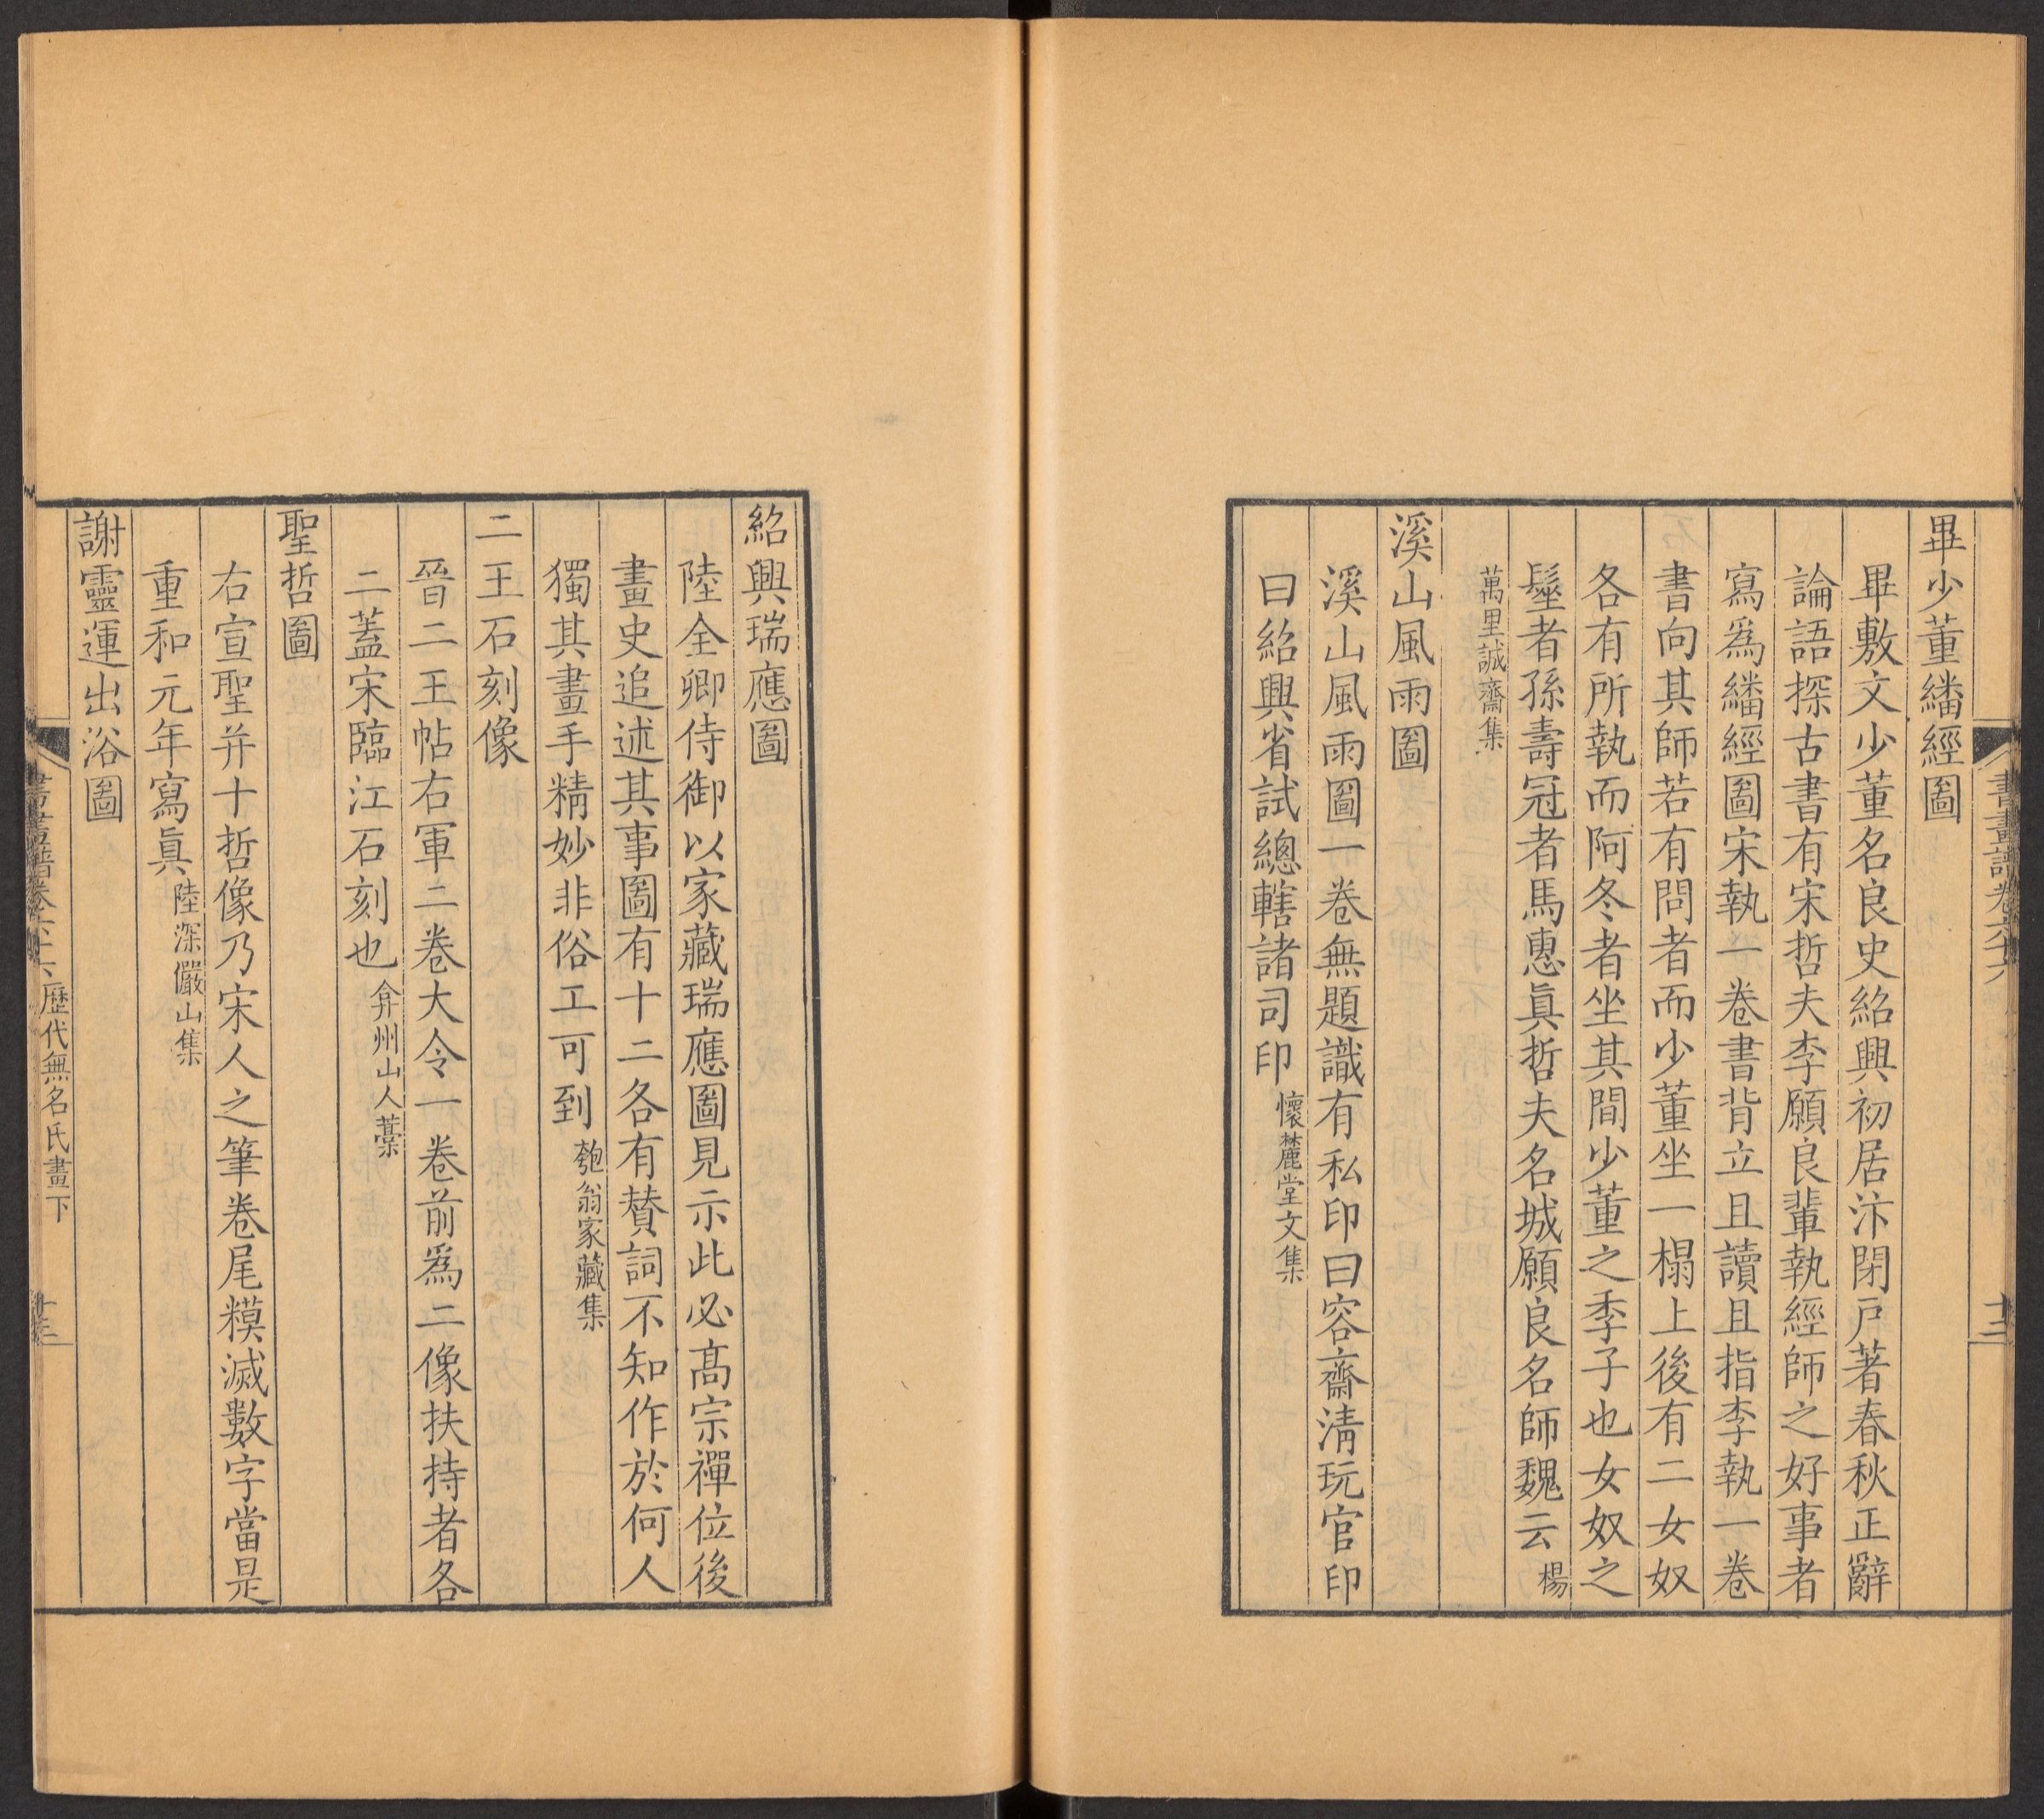 畢少董繙經圖
畢敷文少董名良史紹興初居汴閉戸著春秋正辭
論語探古書有宋哲夫李願良輩執經師之好事者
寫爲繙經圖宋執一卷書背立且讀且指李執一卷
書向其師若有問者而少董坐一榻上後有二女奴
各有所執而阿冬者坐其間少董之季子也女奴之
髽者孫壽冠者馬惠眞哲夫名城願良名師魏云楊
萬里誠齋集
溪山風雨圖
溪山風雨圖一卷無題識有私印曰容齋淸玩官印
曰紹興省試總轄諸司印懷麓堂文集
紹興瑞應圖
陸全卿侍御以家藏瑞應圖見示此必髙宗禪位後
畫史追述其事圖有十二各有賛詞不知作於何人
獨其畫手精妙非俗工可到匏翁家藏集
二王石刻像
晉二王帖右軍二卷大令一卷前爲二像扶持者各
二蓋宋臨江石刻也弇州山人藁
聖哲圖
右宣聖并十哲像乃宋人之筆卷尾糢滅數字當是
重和元年寫眞陸深儼山集
謝靈運出浴圖
歷代無名氏畫下